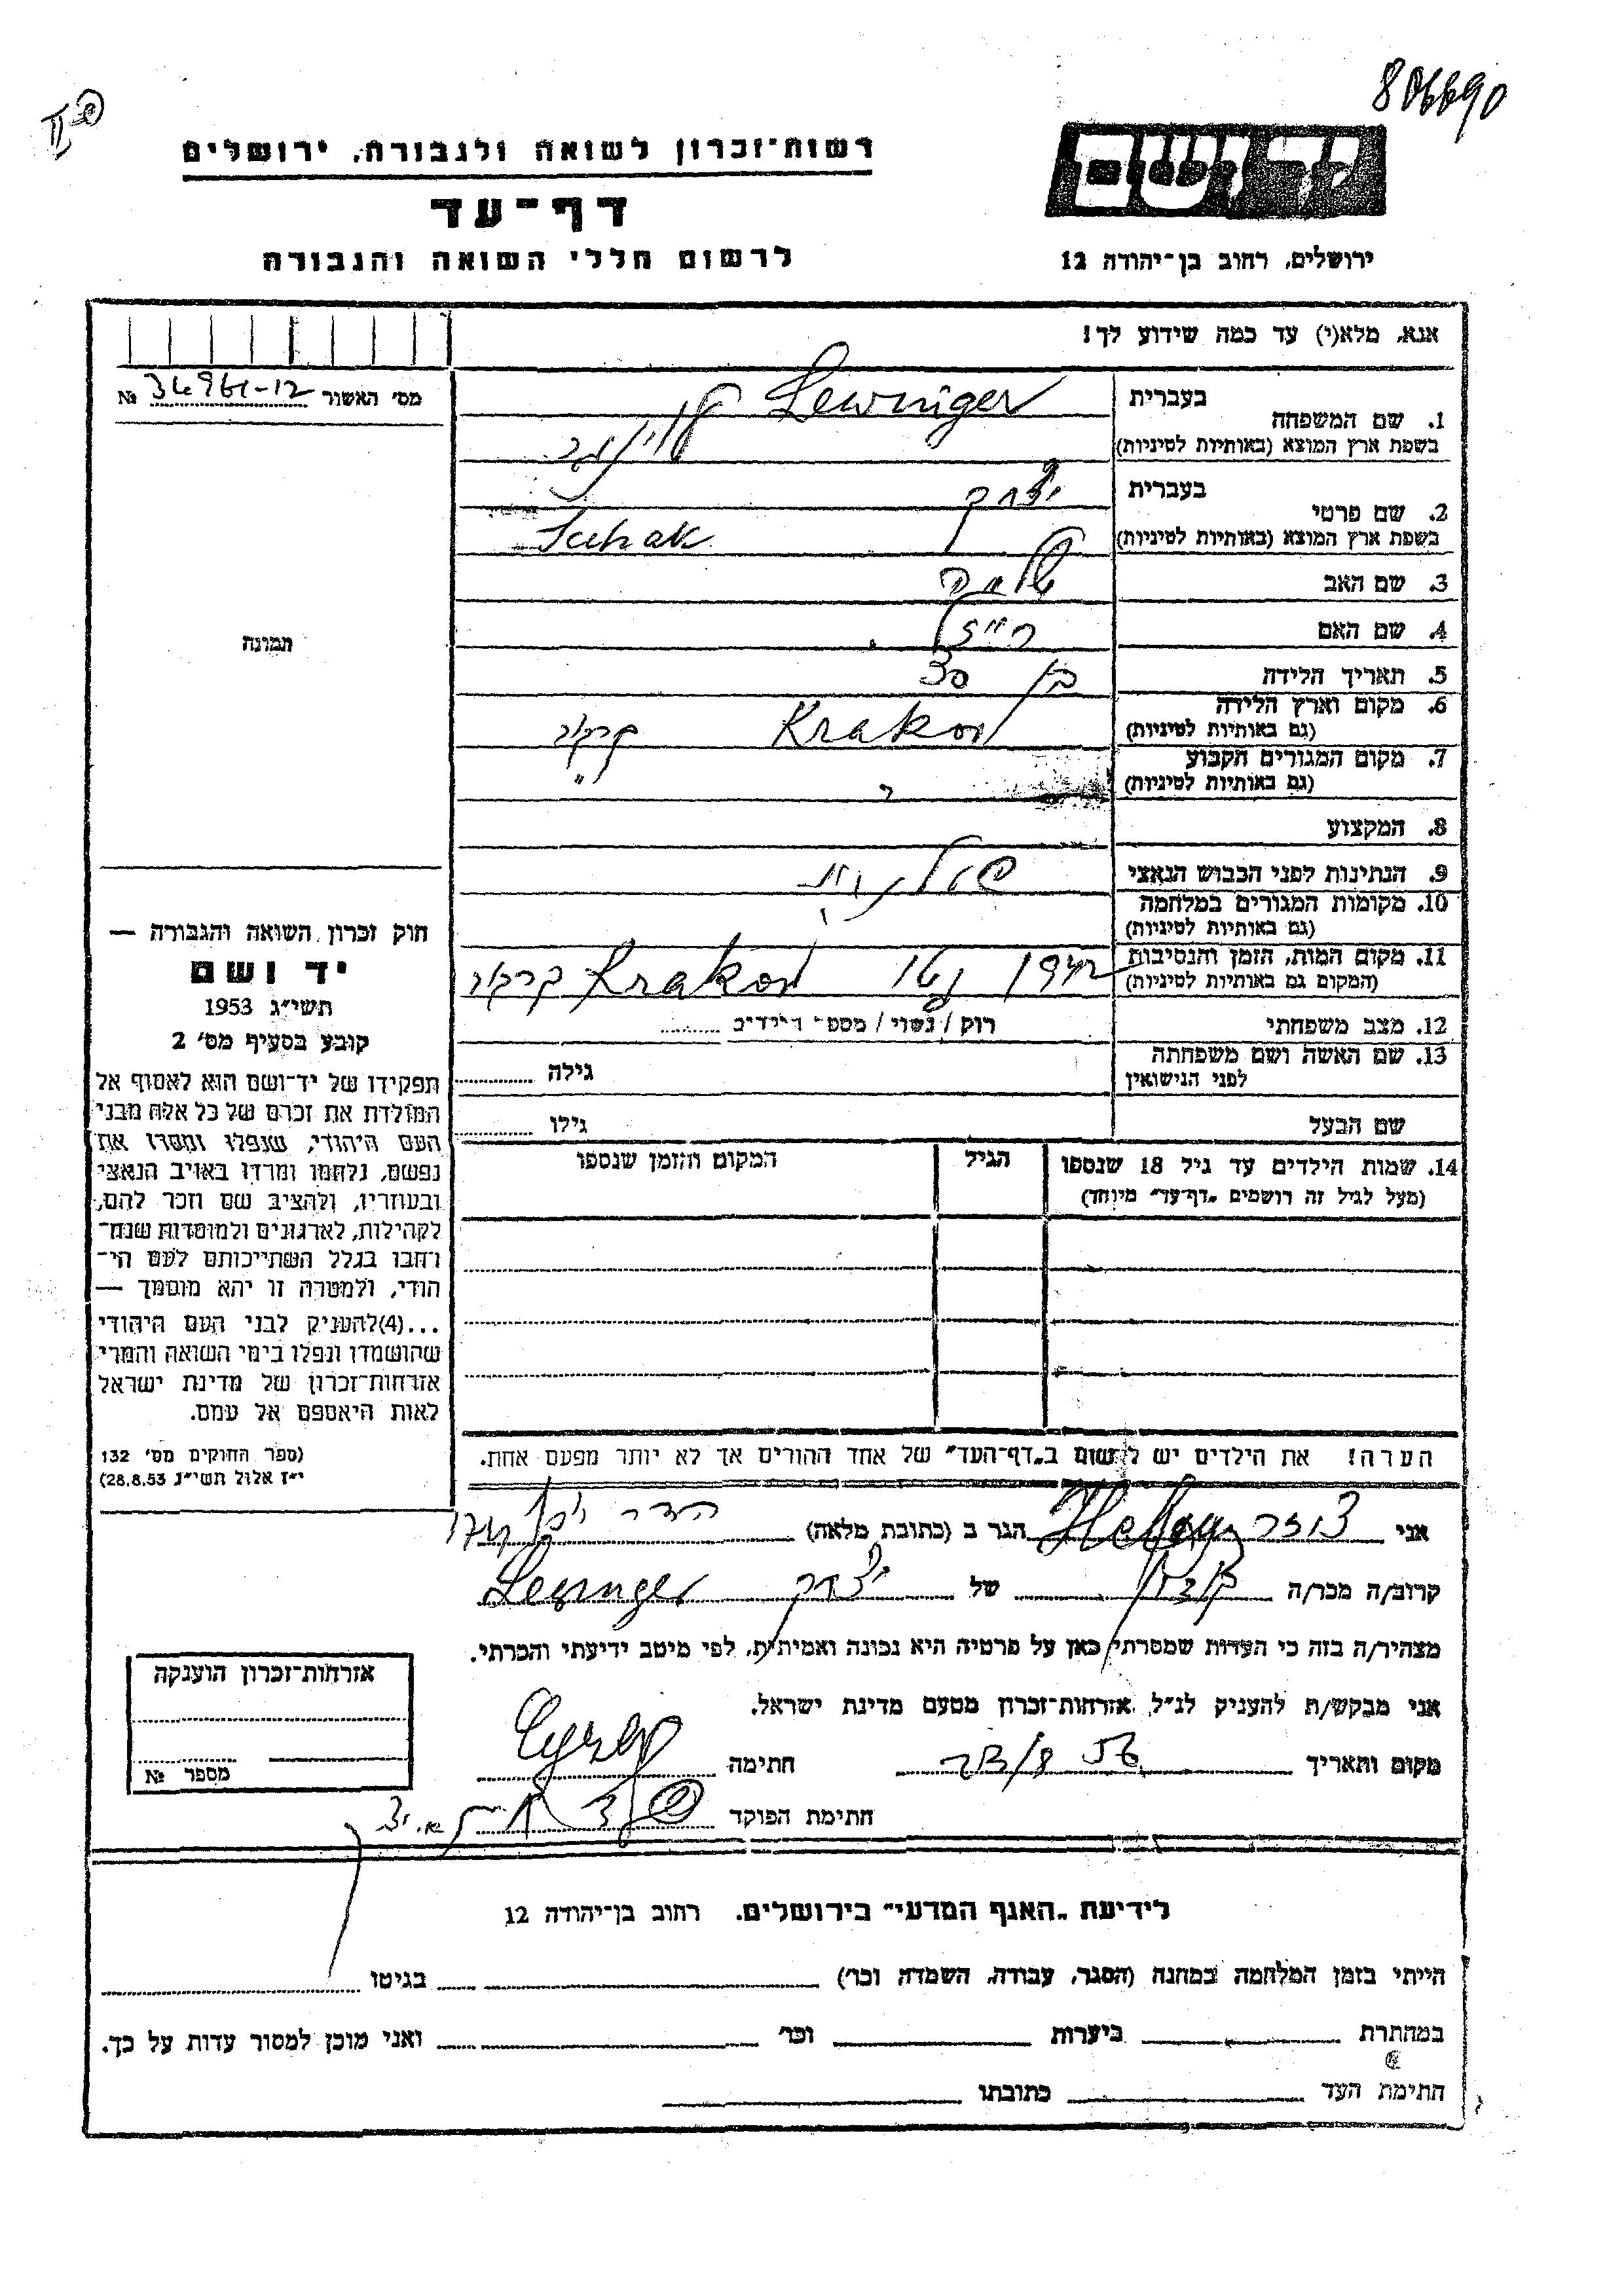 806690
רשות־זכרון לשואה ולגבורה, ירושלים
דף־עד
לרשום חללי השואה והגבורה
יד ושם
ירושלים, רחוב בן־יהודה 12
אנא, מלא(י) עד כמה שידוע לך!
מס' האשור 34961-12 №
תמונה
בעברית
1. שם המשפחה
בשפת ארץ המוצא (באותיות לטיניות)
Lewniger
בעברית יצחק
2. שם פרטי
בשפת ארץ המוצא (באותיות לטיניות)
3. שם האב שלמה
4. שם האם רייזל
5. תאריך הלידה בן 30
6. מקום וארץ הלידה Krakow קרקוב
(גם באותיות לטיניות)
7. מקום המגורים הקבוע "
(גם באותיות לטיניות)
8. המקצוע
9. הנתינות לפני הכבוש הנאצי פולנית
10. מקומות המגורים במלחמה
(גם באותיות לטיניות)
11. מקום המות, הזמן והנסיבות 1942 Krakow קרקוב
(המקום גם באותיות לטיניות)
12. מצב משפחתי רוק / נשוי / מספר הילדים
13. שם האשה ושם משפחתה גילה
לפני הנישואין
שם הבעל גילו
14. שמות הילדים עד גיל 18 שנספו הגיל המקום והזמן שנספו
(מעל לגיל זה רושמים „דף־עד" מיוחד)
חוק זכרון השואה והגבורה —
יד ושם
תשי"ג 1953
קובע בסעיף מס' 2
תפקידו של יד־ושם הוא לאסוף אל
המולדת את זכרם של כל אלה מבני
העם היהודי, שנפלו ומסרו את
נפשם, נלחמו ומרדו באויב הנאצי
ובעוזריו, ולהציב שם וזכר להם,
לקהילות, לארגונים ולמוסדות שנח־
רחבו בגלל השתייכותם לעם הי־
הודי, ולמטרה זו יהא מוסמך —
...(4)להעניק לבני העם היהודי
שהושמדו ונפלו בימי השואה והמרי
אזרחות־זכרון של מדינת ישראל
לאות היאספם אל עמם.
(ספר החוקים מס' 132
י"ז אלול תשי"ג 28.8.53)
הערה! את הילדים יש לרשום ב„דף־העד" של אחד ההורים אך לא יותר מפעם אחת.
אני הגר ב (כתובת מלאה)
קרוב/ה מכר/ה של יצחק
מצהיר/ה בזה כי העדות שמסרתי כאן על פרטיה היא נכונה ואמיתית, לפי מיטב ידיעתי והכרתי.
אני מבקש/ת להעניק לנ"ל אזרחות־זכרון מטעם מדינת ישראל.
מקום ותאריך חתימה
חתימת הפוקד
אזרחות־זכרון הוענקה
מספר №
לידיעת „האגף המדעי" בירושלים, רחוב בן־יהודה 12
הייתי בזמן המלחמה במחנה (הסגר, עבודה, השמדה וכו') בגיטו
במחתרת ביערות וכו' ואני מוכן למסור עדות על כך.
חתימת העד כתובתו